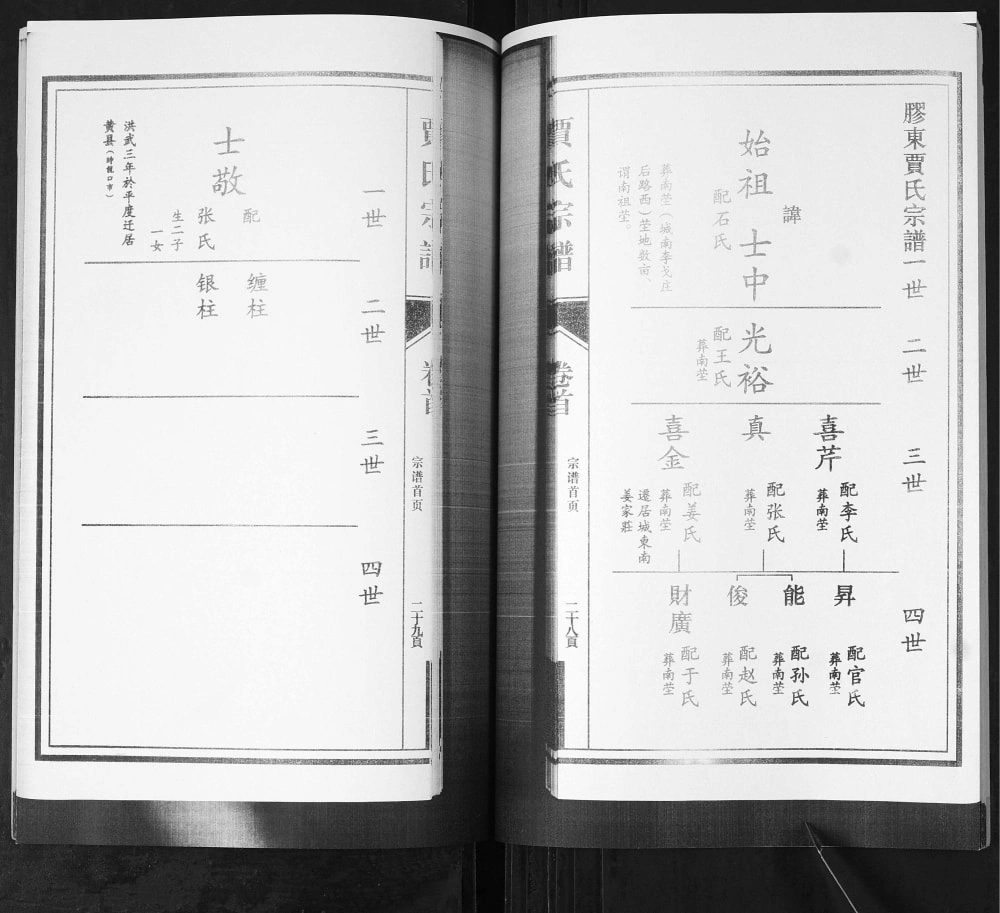 膠東賈氏宗譜
一世
二世
三世
四世
始祖
諱
士中
配石氏
葬南茔（城南李戈庄
后路西）茔地数亩、
谓南祖茔。
光裕
配王氏
葬南茔
喜芹
配李氏
葬南茔
真
配张氏
葬南茔
喜金
配姜氏
葬南茔
遷居城東南
姜家莊
昇
配官氏
葬南茔
能
配孙氏
葬南茔
俊
配赵氏
葬南茔
財廣
配于氏
葬南茔
賈氏宗譜
卷首
宗谱首页
二十八頁
賈氏宗譜
卷首
宗谱首页
二十九頁
一世
二世
三世
四世
士敬
配
张氏
生二子
一女
洪武三年於平度迁居
黄县（时龍口市）
缠柱
银柱